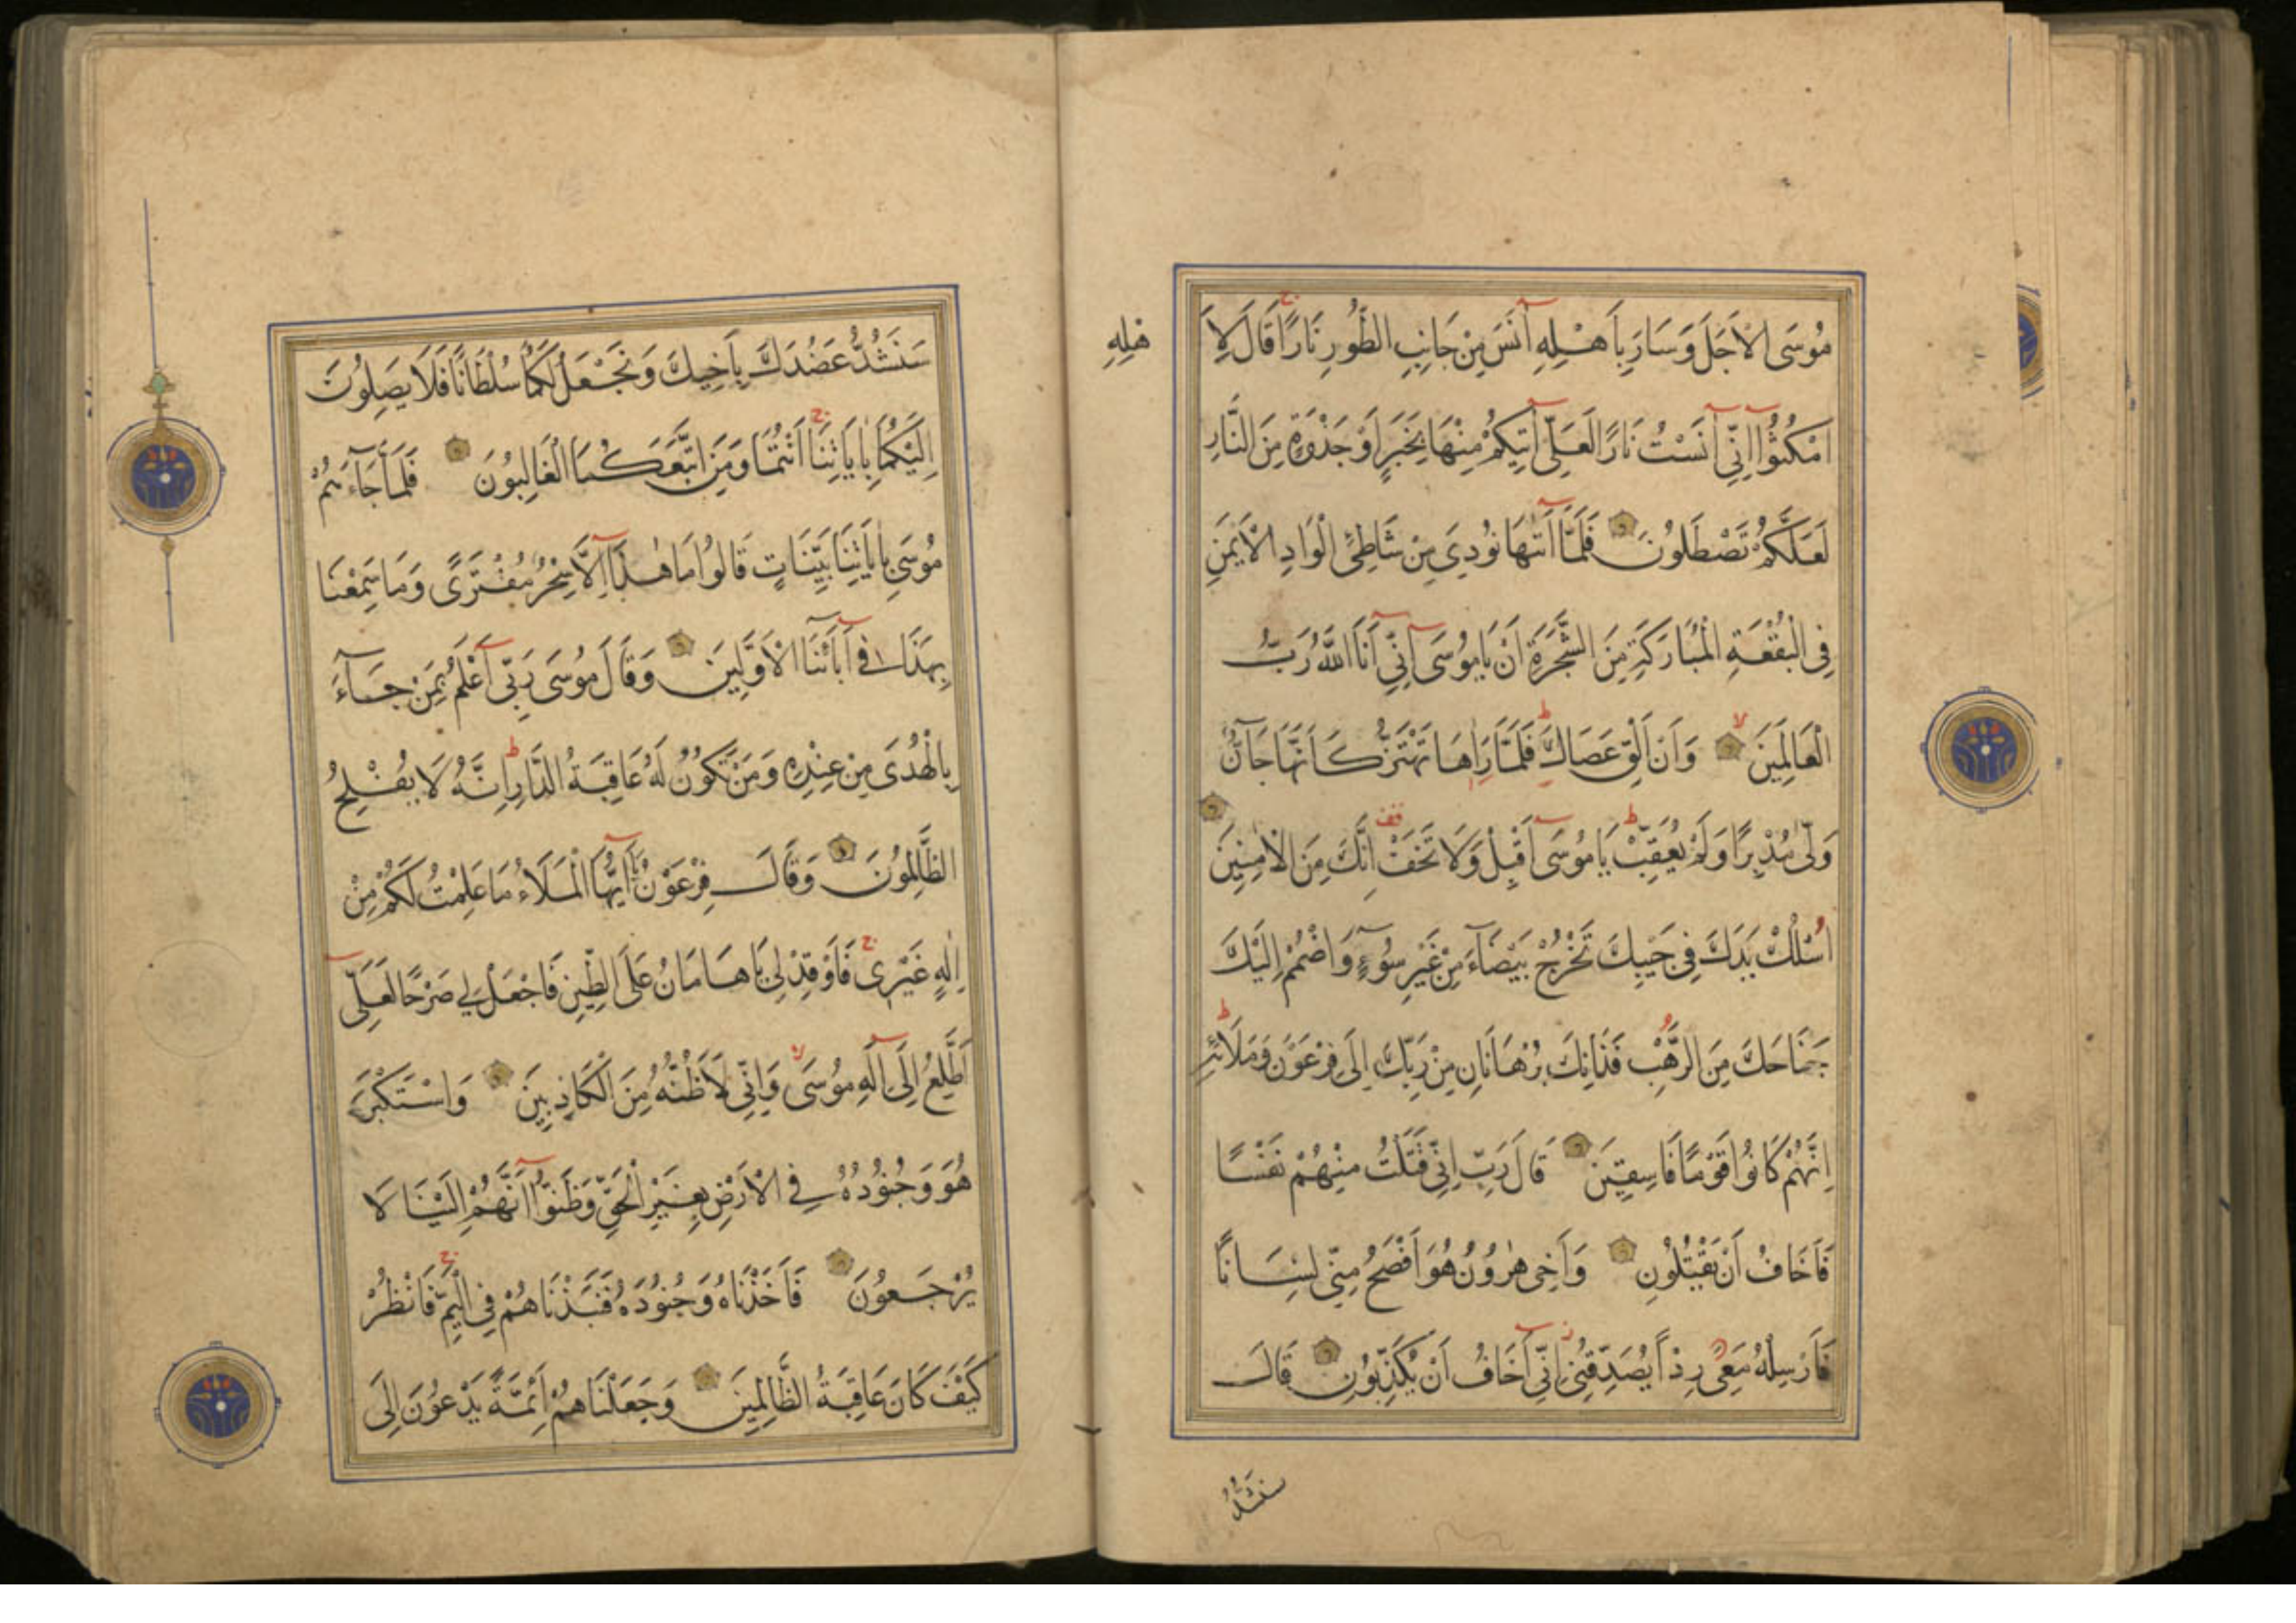 مُوسَى الْاَجَلَ وَسَارَ بِاَهْلِهِ آنَسَ مِنْ جَانِبِ الطُّورِ نَارًا قَالَ لِاَ
هْلِهِ
امْكُثُوٓا اِنِّيٓ آنَسْتُ نَارًا لَعَلِّيٓ آتِيكُمْ مِنْهَا بِخَبَرٍ اَوْ جَذْوَةٍ مِنَ النَّارِ
لَعَلَّكُمْ تَصْطَلُونَ فَلَمَّآ اَتٰهَا نُودِيَ مِنْ شَاطِئِ الْوَادِ الْاَيْمَنِ
فِي الْبُقْعَةِ الْمُبَارَكَةِ مِنَ الشَّجَرَةِ اَنْ يَا مُوسَىٓ اِنِّيٓ اَنَا اللّٰهُ رَبُّ
الْعَالَمِينَ وَاَنْ اَلْقِ عَصَاكَ فَلَمَّا رَاٰهَا تَهْتَزُّ كَاَنَّهَا جَآنٌّ
وَلّٰى مُدْبِرًا وَلَمْ يُعَقِّبْ يَا مُوسَىٓ اَقْبِلْ وَلَا تَخَفْ اِنَّكَ مِنَ الْاٰمِنِينَ
اُسْلُكْ يَدَكَ فِي جَيْبِكَ تَخْرُجْ بَيْضَآءَ مِنْ غَيْرِ سُوٓءٍ وَاضْمُمْ اِلَيْكَ
جَنَاحَكَ مِنَ الرَّهْبِ فَذَانِكَ بُرْهَانَانِ مِنْ رَبِّكَ اِلَى فِرْعَوْنَ وَمَلَائِهِ
اِنَّهُمْ كَانُوا قَوْمًا فَاسِقِينَ قَالَ رَبِّ اِنِّي قَتَلْتُ مِنْهُمْ نَفْسًا
فَاَخَافُ اَنْ يَقْتُلُونِ وَاَخِي هٰرُونُ هُوَ اَفْصَحُ مِنِّي لِسَانًا
فَاَرْسِلْهُ مَعِيَ رِدْءًا يُصَدِّقُنِي اِنِّيٓ اَخَافُ اَنْ يُكَذِّبُونِ قَالَ
سَنَشُدُّ
سَنَشُدُّ عَضُدَكَ بِاَخِيكَ وَنَجْعَلُ لَكُمَا سُلْطَانًا فَلَا يَصِلُونَ
اِلَيْكُمَا بِاٰيَاتِنَآ اَنْتُمَا وَمَنِ اتَّبَعَكُمَا الْغَالِبُونَ فَلَمَّا جَآءَهُمْ
مُوسَى بِاٰيَاتِنَا بَيِّنَاتٍ قَالُوا مَا هٰذَآ اِلَّا سِحْرٌ مُفْتَرًى وَمَا سَمِعْنَا
بِهَذَا فِيٓ آبَآئِنَا الْاَوَّلِينَ وَقَالَ مُوسَى رَبِّيٓ اَعْلَمُ بِمَنْ جَآءَ
بِالْهُدَى مِنْ عِنْدِهِ وَمَنْ تَكُونُ لَهُ عَاقِبَةُ الدَّارِ اِنَّهُ لَا يُفْلِحُ
الظَّالِمُونَ وَقَالَ فِرْعَوْنُ يَآ اَيُّهَا الْمَلَاُ مَا عَلِمْتُ لَكُمْ مِنْ
اِلٰهٍ غَيْرِي فَاَوْقِدْ لِي يَا هَامَانُ عَلَى الطِّينِ فَاجْعَلْ لِي صَرْحًا لَعَلِّيٓ
اَطَّلِعُ اِلَىٓ اِلٰهِ مُوسَى وَاِنِّي لَاَظُنُّهُ مِنَ الْكَاذِبِينَ وَاسْتَكْبَرَ
هُوَ وَجُنُودُهُ فِي الْاَرْضِ بِغَيْرِ الْحَقِّ وَظَنُّوٓا اَنَّهُمْ اِلَيْنَا لَا
يُرْجَعُونَ فَاَخَذْنَاهُ وَجُنُودَهُ فَنَبَذْنَاهُمْ فِي الْيَمِّ فَانْظُرْ
كَيْفَ كَانَ عَاقِبَةُ الظَّالِمِينَ وَجَعَلْنَاهُمْ اَئِمَّةً يَدْعُونَ اِلَى